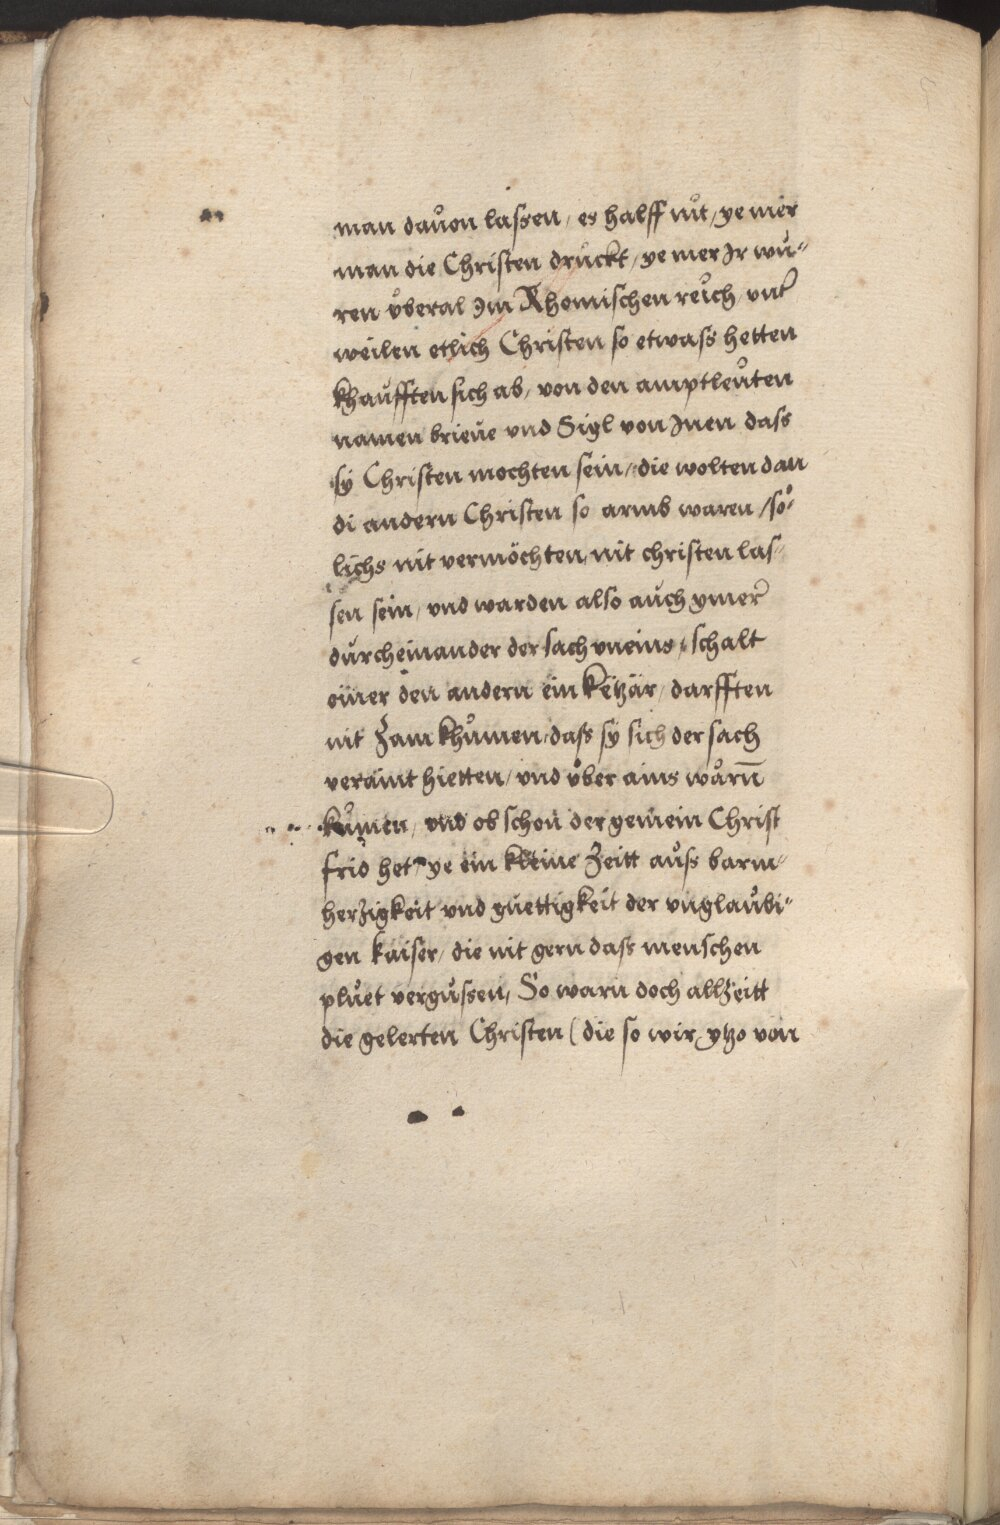 man dauon lassen / es halff nit / ye mer
man die Christen druckt / ye mer Ir wu-
ren vberal Im Rhomischen reich / vnter
weilen etlich Christen so etwass hetten
khaufften sich ab / von den amptleuten
namen brieue vnd Sigl von Inen dass
sÿ Christen mochten sein / die wolten dan
di andern Christen so armb waren / so-
lichs nit vermöchten, nit christen las-
sen sein / vnd warden also auch ymer
durcheinander der sach vneins / schalt
einer den andern ein ketzär / darfften
nit zam khumen / dass sÿ sich der sach
veraint hietten / vnd vber ains warn
kumen / vnd ob schon der gemein Christ
frid het / ye ein kleine zeitt auss barm-
herzigkeit vnd guettigkeit der vnglaubi-
gen kaiser / die nit gern dass menschen
pluet vergussen, So warn doch allzeitt
die gelerten Christen (die so wir ytzo von